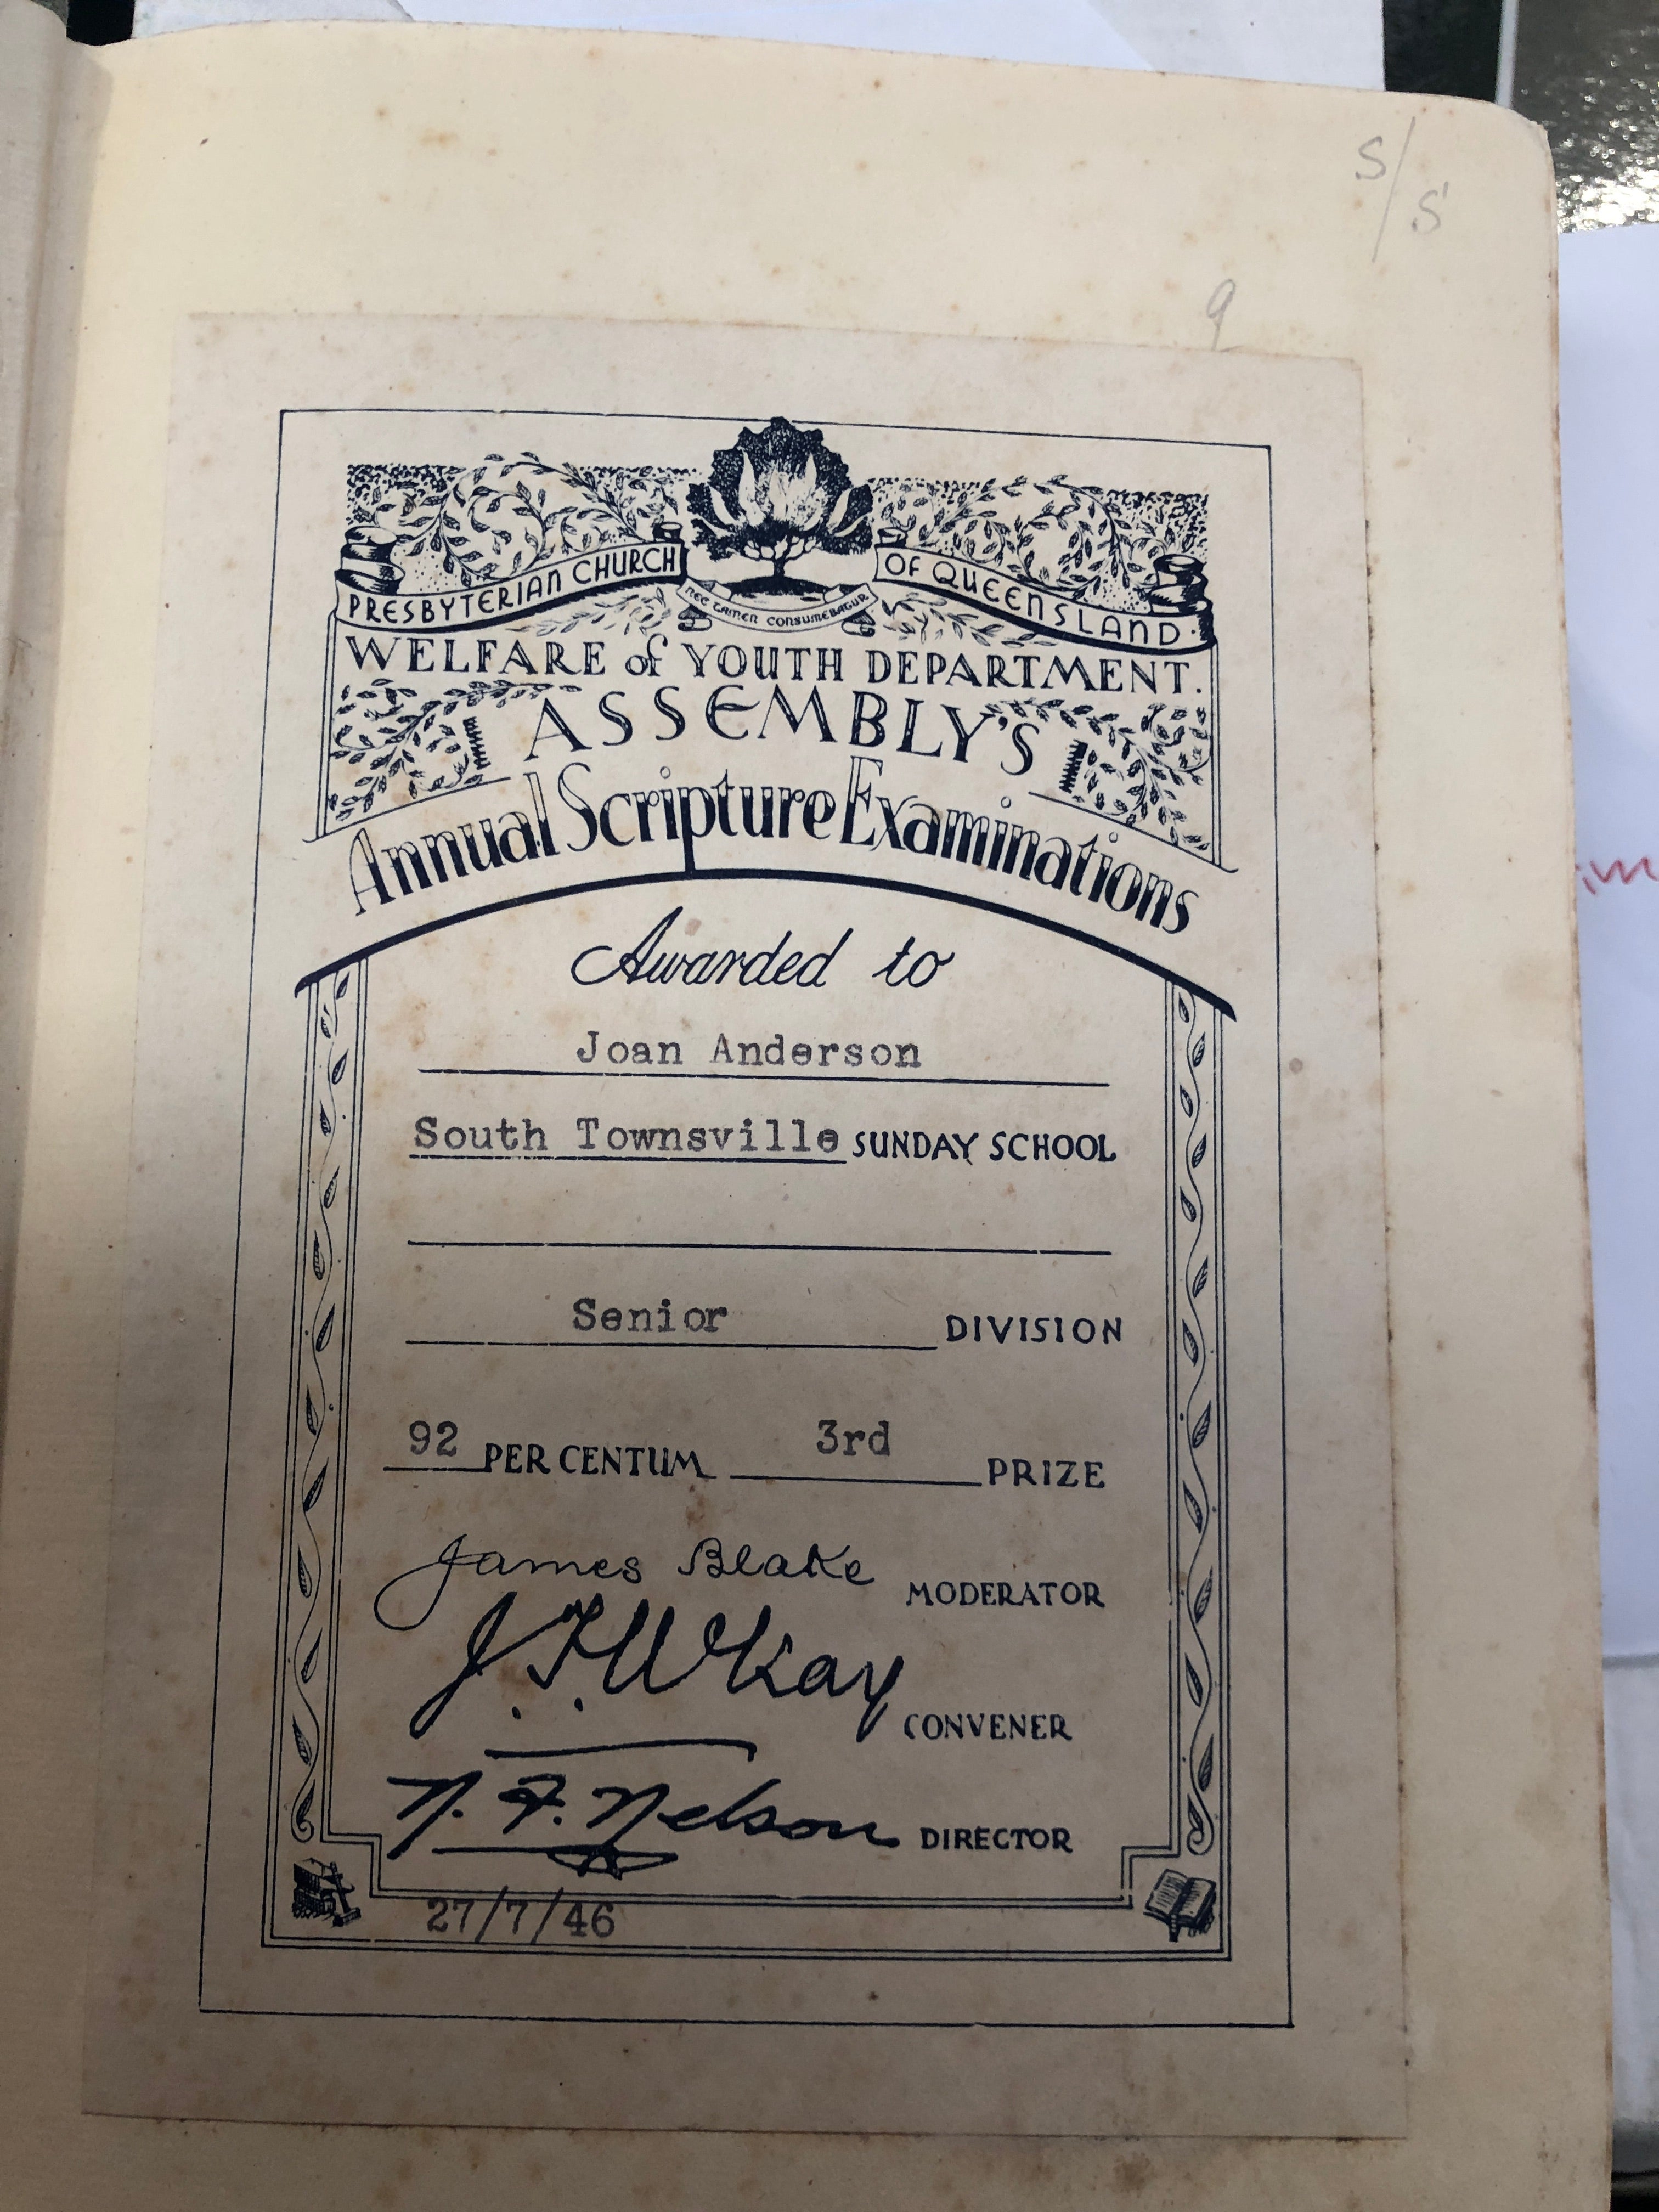 S/S
9
PRESBYTERIAN CHURCH OF QUEENSLAND.
NEC TAMEN CONSUMEBATUR
WELFARE of YOUTH DEPARTMENT.
ASSEMBLY'S
Annual Scripture Examinations
Awarded to
Joan Anderson
South Townsville SUNDAY SCHOOL
Senior DIVISION
92 PER CENTUM 3rd PRIZE
James Blake MODERATOR
J. F. McKay CONVENER
N. F. Nelson DIRECTOR
27/7/46